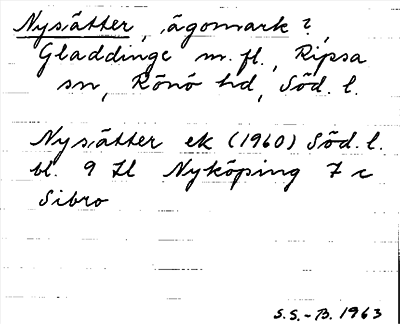 Nysätter, ägomark?,
Gladdinge m.fl., Ripsa
sn, Rönö hd, Söd. l.
Nysätter ek (1960) Söd. l.
bl. 9 H Nyköping 7 c
Sibro
S.S.-B. 1963